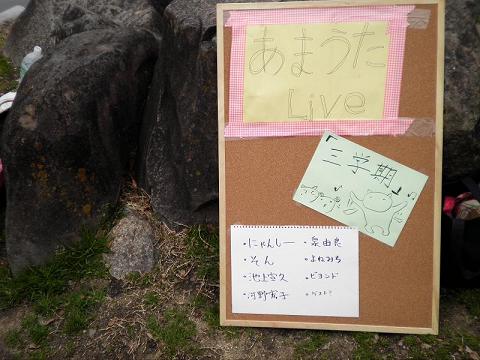 あまうた
Live
「三学期」
・にゃんしー
・そん
・池上宣久
・河野宏子
・泉由良
・よねみち
・ビヨンド
・ゲスト?